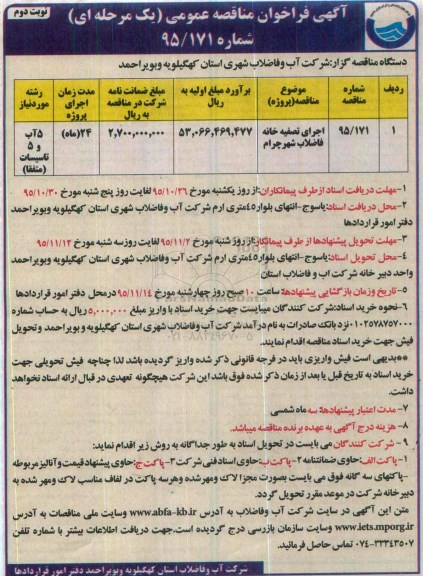 نوبت دوم
آگهی فراخوان مناقصه عمومی (یک مرحله ای)
شماره ۹۵/۱۷۱
دستگاه مناقصه گزار: شرکت آب وفاضلاب شهری استان کهگیلویه وبویراحمد
ردیف شماره مناقصه موضوع مناقصه(پروژه) برآورد مبلغ اولیه به ریال مبلغ ضمانت نامه شرکت در مناقصه به ریال مدت زمان اجرای پروژه رشته موردنیاز
۱ ۹۵/۱۷۱ اجرای تصفیه خانه فاضلاب شهرچرام ۵۳,۰۶۶,۴۶۹,۴۷۷ ۲,۷۰۰,۰۰۰,۰۰۰ ۲۴(ماه) ۵آب و ۵ تاسیسات (متفقا)
۱-مهلت دریافت اسناد ازطرف پیمانکاران:از روز یکشنبه مورخ ۹۵/۱۰/۲۶ لغایت روز پنج شنبه مورخ ۹۵/۱۰/۳۰
۲-محل دریافت اسناد:یاسوج-انتهای بلوار۴۵متری ارم شرکت آب وفاضلاب شهری استان کهگیلویه وبویراحمد
دفتر امور قراردادها
۳-مهلت تحویل پیشنهادها از طرف پیمانکار:از روز شنبه مورخ ۹۵/۱۱/۲ لغایت روزسه شنبه مورخ ۹۵/۱۱/۱۲
۴-محل تحویل اسناد:یاسوج-انتهای بلوار۴۵متری ارم شرکت آب وفاضلاب شهری استان کهگیلویه وبویراحمد
واحد دبیر خانه شرکت اب و فاضلاب استان
۵-تاریخ وزمان بازگشایی پیشنهادها: ساعت ۱۰ صبح روز چهارشنبه مورخ ۹۵/۱۱/۱۴ درمحل دفتر امور قراردادها
۶-نحوه خرید اسناد:شرکت کنندگان میبایست جهت خرید اسناد با واریز مبلغ ۵,۰۰۰,۰۰۰ ریال به حساب شماره
۰۱۰۲۵۷۸۷۵۷۰۰۰ نزد بانک صادرات به نام درآمد شرکت آب وفاضلاب شهری استان کهگیلویه و بویراحمد و تحویل
فیش جهت خرید اسناد مناقصه اقدام نمایند.
**بدیهی است فیش واریزی باید در فرجه قانونی ذکر شده واریز گردیده باشد لذا چناچه فیش تحویلی جهت
خرید اسناد به تاریخ قبل یا بعد از زمان ذکر شده فوق باشد این شرکت هیچگونه تعهدی در قبال ارائه اسناد نخواهد
داشت.
۷-مدت اعتبار پیشنهادها: سه ماه شمسی
۸-هزینه درج آگهی به عهده برنده مناقصه میباشد.
۹-شرکت کنندگان می بایست در تحویل اسناد به طور جداگانه به روش زیر اقدام نماید:
۱-پاکت الف:حاوی ضمانتنامه ۲-پاکت ب:حاوی اسناد فنی شرکت ۳-پاکت ج:حاوی پیشنهاد قیمت و آنالیز مربوطه
-پاکتهای سه گانه فوق می بایست بصورت مجزا لاک ومهرشده وهرسه پاکت در لفاف مناسب لاک ومهر شده به
دبیرخانه شرکت در موعد مقرر تحویل گردد.
متن این آگهی در سایت شرکت آب وفاضلاب به آدرس www.abfa-kb.ir وسایت ملی مناقصات به آدرس
www.iets.mporg.ir وسایت سازمان بازرسی درج گردیده است.جهت دریافت اطلاعات بیشتر با شماره تلفن
۰۷۴-۳۳۳۴۳۵۰۷ تماس حاصل فرمائید.
شرکت آب وفاضلاب استان کهگیلویه وبویراحمد دفتر امور قراردادها